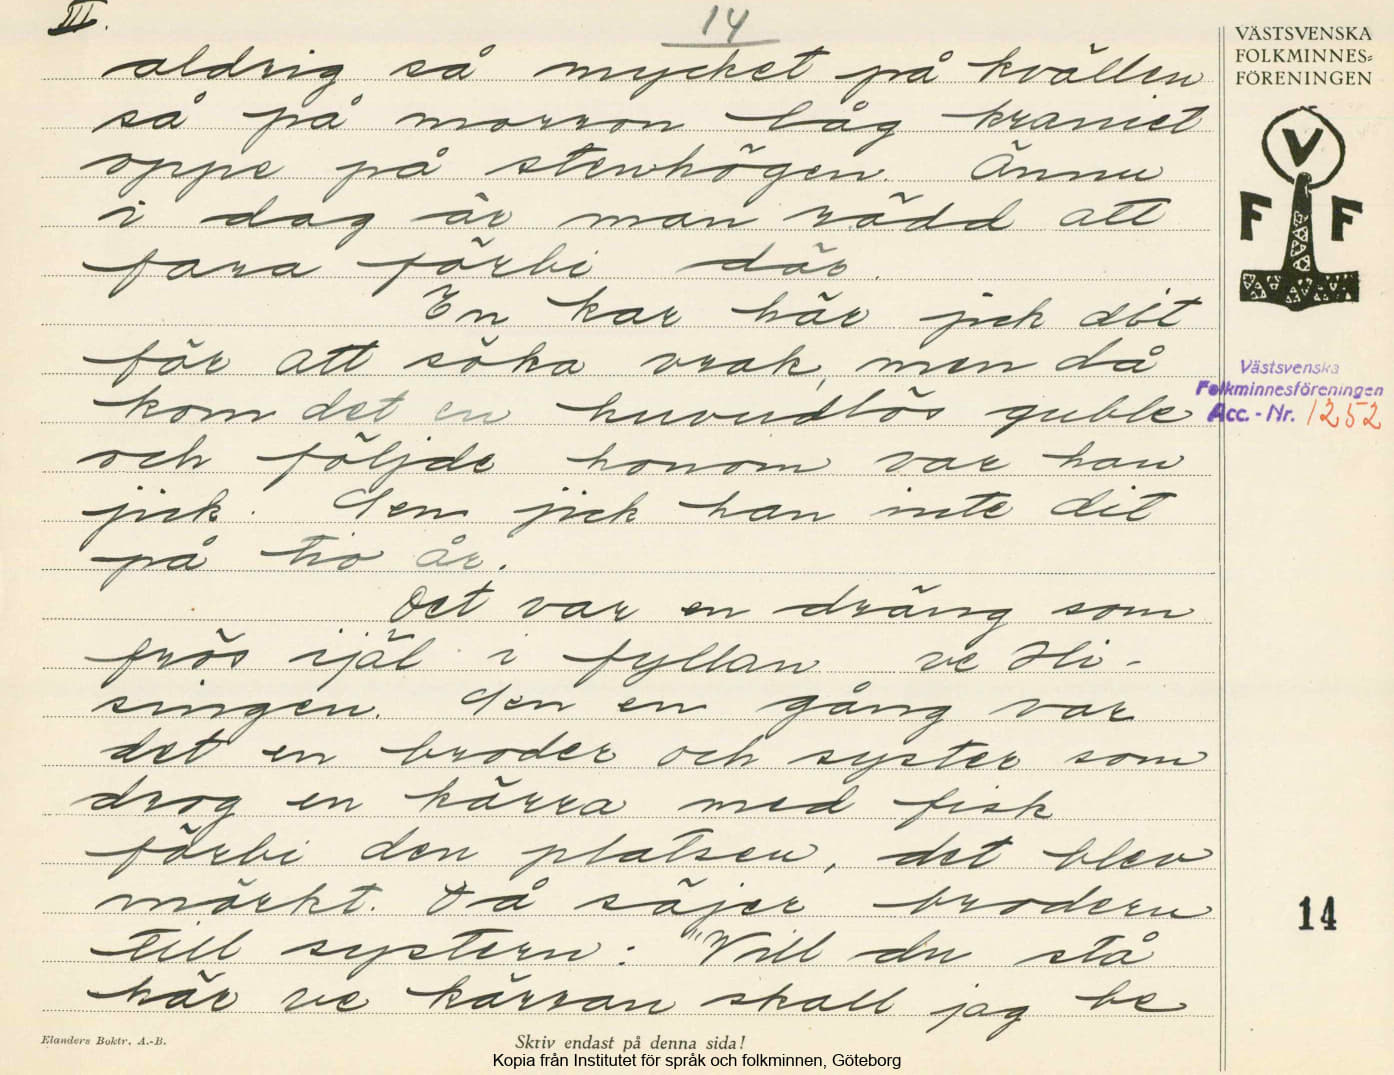 III.
14
aldrig så mycket på kvällen
så på morron låg kraniet
oppe på stenhögen. Ännu
i dag är man rädd att
fara förbi där.
En kar här jick dit
för att söka vrak, men då
kom det en huvudlös gubbe
och följde honom var han
jick. Sen jick han inte dit
på tio år.
Det var en dräng som
frös ijäl i fyllan ve Hi-
singen. Sen en gång var
det en broder och syster som
drog en kärra med fisk
förbi den platsen, det blev
mörkt. Då säjer brodern
till systern: "Vill du stå
här ve kärran skall jag be
VÄSTSVENSKA
FOLKMINNES-
FÖRENINGEN
V
F F
Västsvenska
Folkminnesföreningen
Acc. - Nr. 1252
14
Elanders Boktr. A.-B.
Skriv endast på denna sida!
Kopia från Institutet för språk och folkminnen, Göteborg